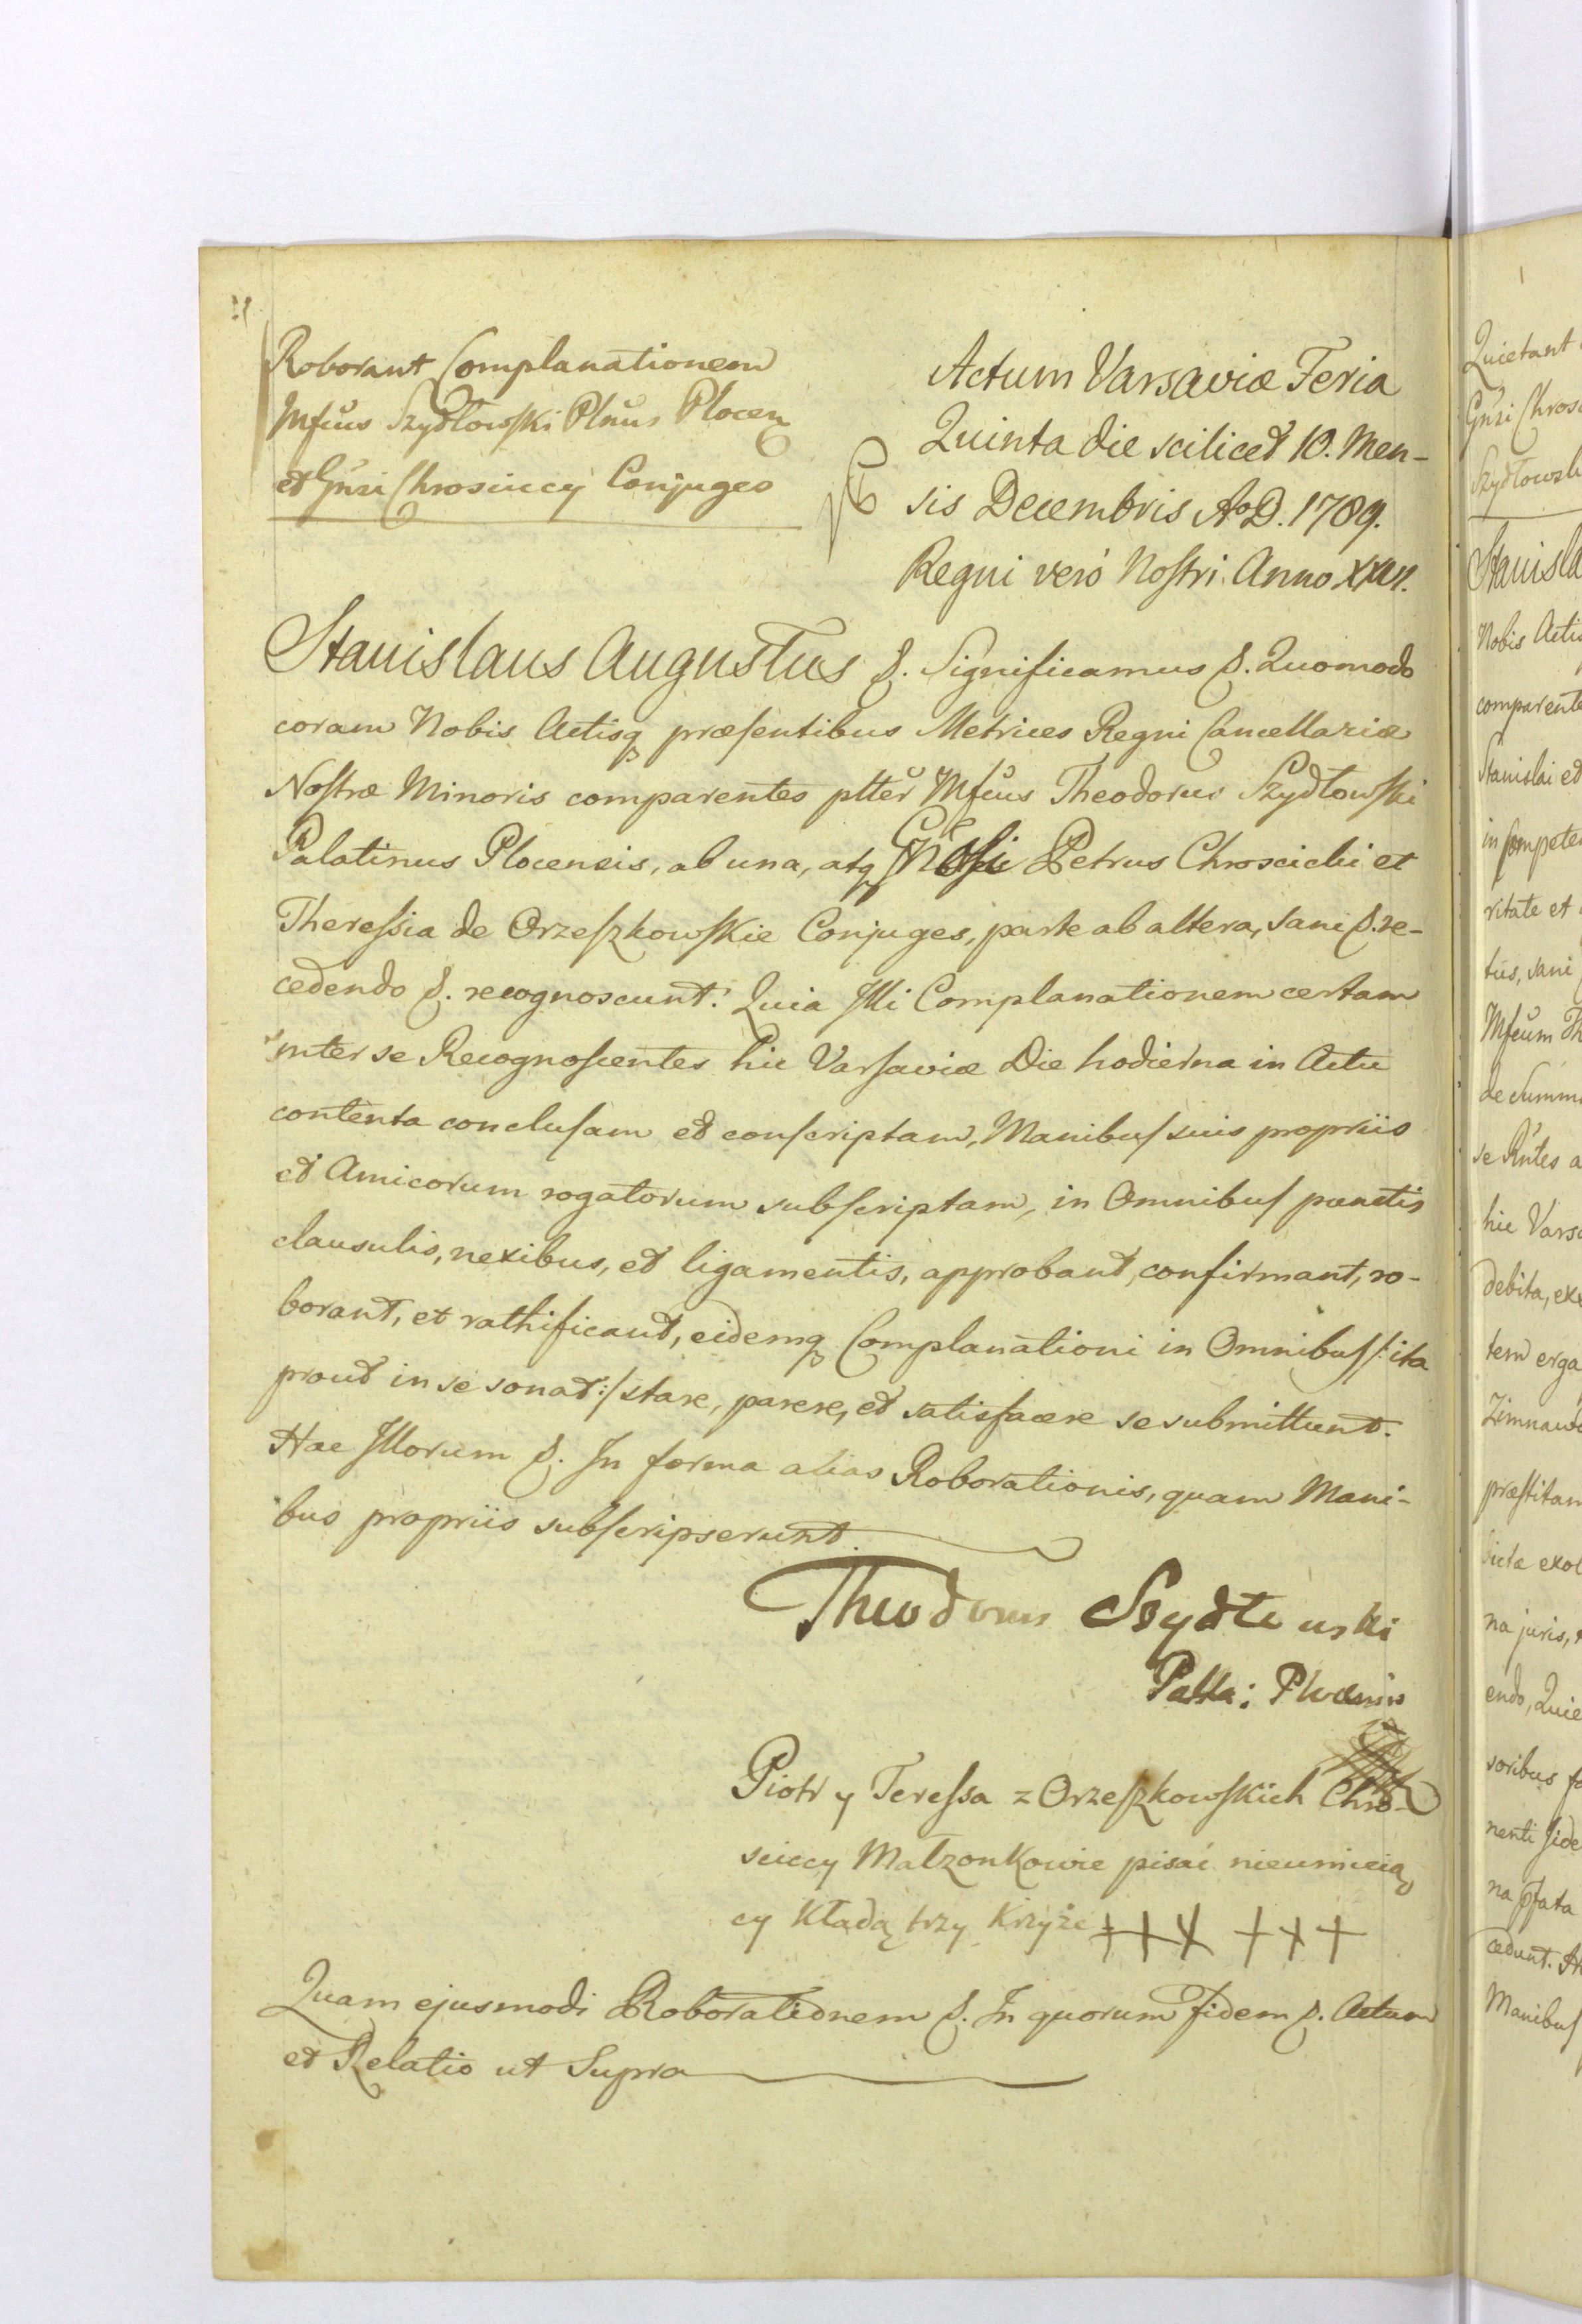 Roborant Complanationem
Mfcus Szydłowski Plnus Plocen
et Gnsi Chrosciccy Conjuges
Actum Varsaviæ Feria
Quinta die scilicet 10. Men-
sis Decembris AoD. 1789.
Regni verò Noſtri Anno XXVI.
Stanislaus Augustus &. Significamus &. Quomodo
coram Nobis Actisq præſentibus Metrices Regni Cancellariæ
Noſtræ Minoris comparentes pltter Mfcus Theodorus Szydłowſki
Palatinus Plocensis, ab una, atq Gnosi Petrus Chroscicki et
Thereſsia de Orzeſzkowſkie Conjuges, parte ab altera, sani &. re-
cedendo &. recognoscunt: Quia Illi Complanationem certam
inter se Recognoſcentes hic Varſaviæ Die hodierna in Actu
contenta concluſam et conſcriptam, Manibuſ suis propriis
et Amicorum rogatorum subſcriptam, in Omnibuſ punctis
clausulis, nexibus, et ligamentis, approbant, confirmant, ro-
borant, et rathificant, eidemq Complanationi in Omnibuſ /: ita
prout in se sonat :/ stare, parere, et satisfacere se submittunt.
Hac Illorum &. In forma alias Roborationis, quam Mani-
bus propriis subſcripserunt.
Theodorus Szydłowski
Palla: Plocensis
Piotr y Tereſsa z Orzeſzkowſkich Chro-
sciccy Małzonkowie pisać nieumieią
cy Kładą trzy Krzyże +++ +++
Quam ejusmodi Roborationem &. In quorum fidem &. Actum
et Relatio ut Supra
Quietant
Gnsi Chrosc
Szydłowsk
Stanisla
Nobis Actis
comparente
Stanislai et
in compete
ritate et
tus, sani
Mfcum Th
de Summ
se Rntes a
hic Vars
debita, ex
tem erga
Zimnawo
præſtitam
na juris,
endo, Quie
soribus fa
nenti fide
na pſata
cedunt. H
Manibuſ